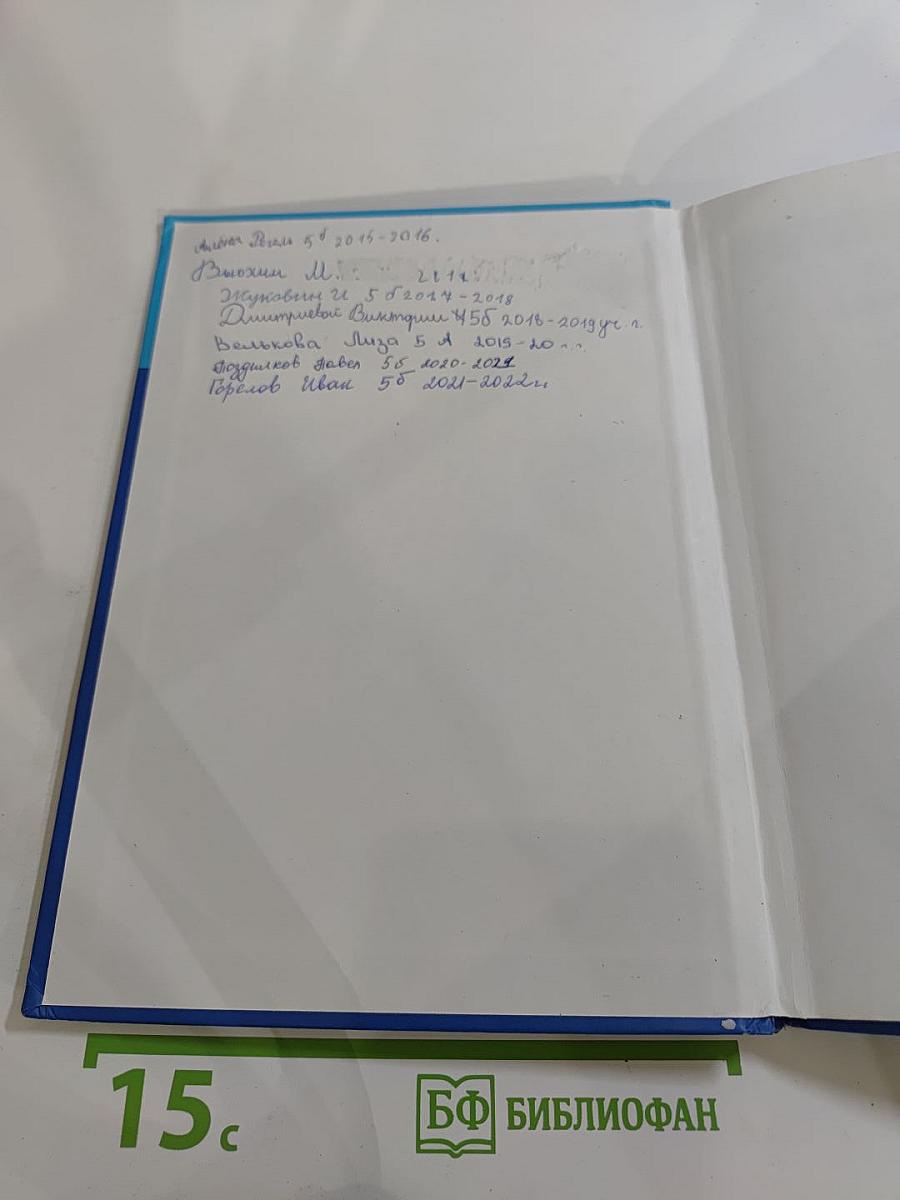 Алёна Регель 5б 2015-2016.
Вьюхин М.
Жуковин И 5б 2017-2018
Дмитриевой Виктории 5б 2018-2019 уч. г.
Велькова Лиза 5 А 2019-20 г.г.
Поздилков Павел 5б 2020-2021
Горелов Иван 5б 2021-2022г.
15 с
БФ БИБЛИОФАН